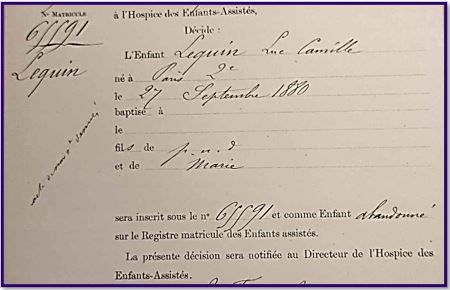 N° MATRICULE
à l'Hospice des Enfants-Assistés,
65591
Décide :
Lequin
L'Enfant Lequin Luc Camille
né à Paris 2e
le 27 Septembre 1880
baptisé à
le
fils de p. n. d
et de Marie
sera inscrit sous le n° 65591 et comme Enfant abandonné
sur le Registre matricule des Enfants assistés.
La présente décision sera notifiée au Directeur de l'Hospice des
Enfants-Assistés.